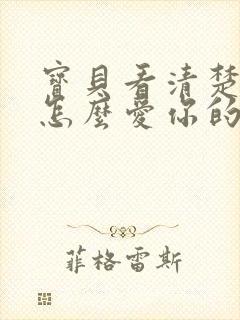 寶貝看清楚
怎麼愛你的
菲格雷斯